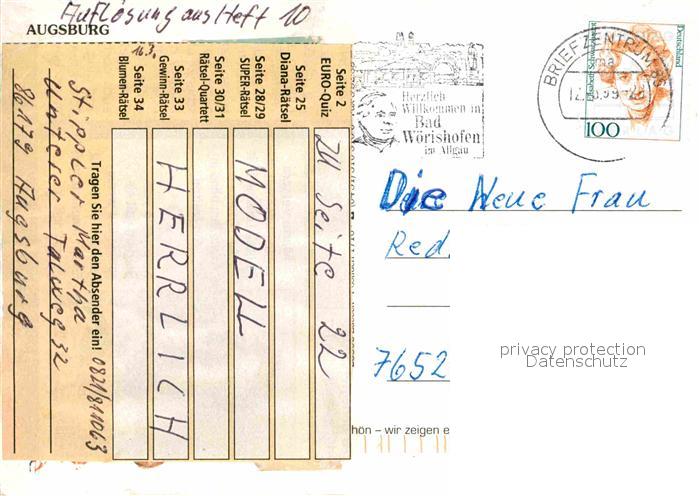 Auflösung aus Heft 10
AUGSBURG
16.3.
Seite 2
EURO-Quiz
zu Seite 22
Seite 25
Diana-Rätsel
Seite 28/29
SUPER-Rätsel
MODELL
Seite 30/31
Rätsel-Quartett
Seite 33
Gewinn-Rätsel
HERRLICH
Seite 34
Blumen-Rätsel
Tragen Sie hier den Absender ein! 0821/811063
Stippler Martha
Unterer Talweg 32
86179 Augsburg
Herzlich
Willkommen in
Bad
Wörishofen
im Allgäu
BRIEFZENTRUM 86
ma
Deutschland
100
Die Neue Frau
Red.
7652
privacy protection
Datenschutz
hön – wir zeigen e